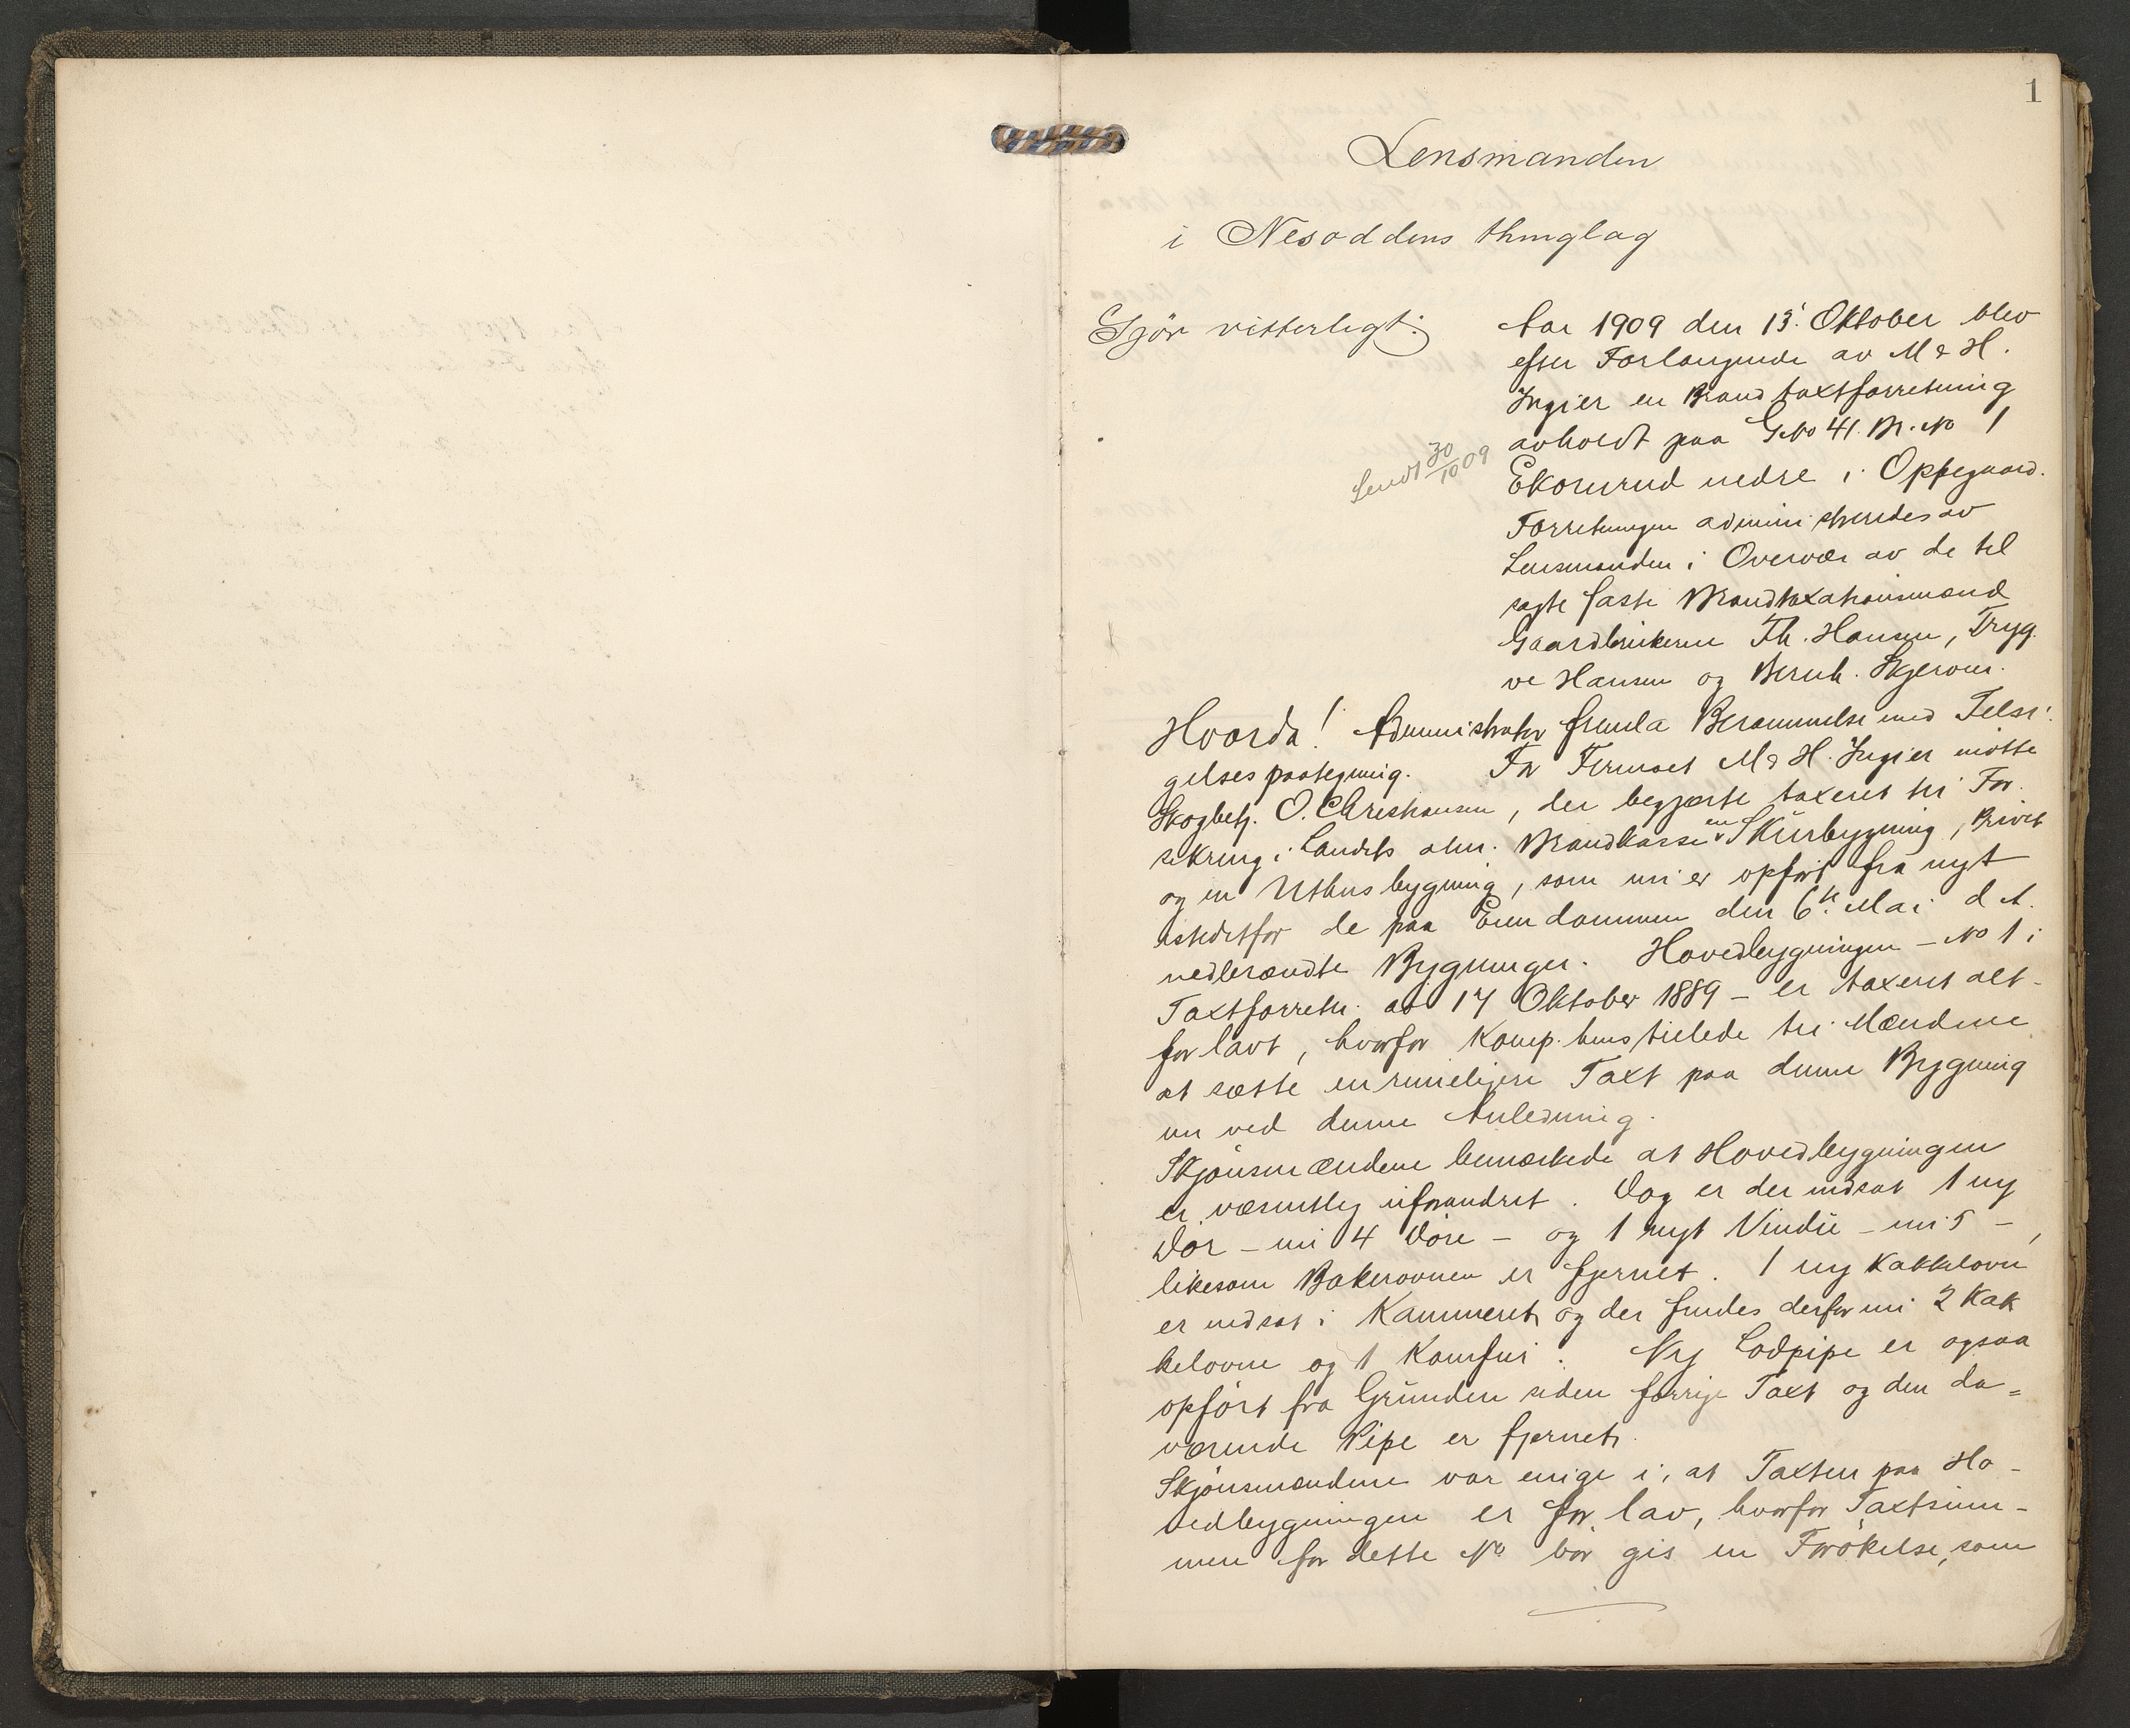 1
Lensmanden
i Nesoddens thinglag
Gjör vitterligt: Aar 1909 den 15' Oktober blev
efter Forlangende av M & H.
Ingier en Brandtaxtforretning
avholdt paa G.No 41. Br. No 1
Sendt 30/10 09
Ekornrud nedre i Oppegaard.
Forretningen administreredes av
Lensmanden i Overvær av de til
sagte faste Brandtaxationsmænd
Gaardbrukerne Th. Hansen, Tryg
ve Hansen og Bernh.
Hvorda! Administrator fremla Berammelse med Tilsi
gelsespaategning. For Firmaet M & H. Ingier mötte
Skogbetj. O. Christiansen, der begjærte taxeret til For
sikring i Landets alm. Brandkasse en Skurbygning,
og en Uthusbygning, som nu er opfört fra nyt
istedetfor de paa Eiendommen den 6te Mai d. A.
nedbrændte Bygninger. Hovedbygningen – No 1 i
Taxtforretn. av 17 Oktober 1889 – er taxeret alt-
for lavt, hvorfor Komp. henstillede til Mændene
at sætte en rimeligere Taxt paa denne Bygning
nu ved denne Anledning.
Skjönsmændene bemærkede at Hovedbygningen
er væsentlig uforandret. Dog er der indsat 1 ny
Dör – nu 4 Döre – og 1 nyt Vindu – nu 5 –,
likesom Bakerovnen er fjernet. 1 ny Kakkelovn
er indsat i Kammeret og der findes derfor nu 2 Kak
kelovne og 1 Komfur. Ny Lodpipe er ogsaa
opfört fra Grunden siden forrige Taxt og den da=
værende Pipe er fjernet.
Skjönsmændene var enige i, at Taxten paa Ho-
vedbygningen er for lav, hvorfor Taxtsum-
men for dette No bör gis en Forökelse, som